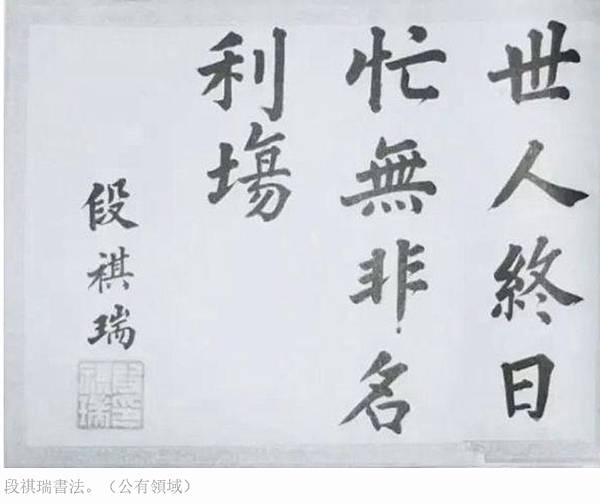 世人終日
忙無非名
利塲
段祺瑞
段祺瑞書法。（公有領域）